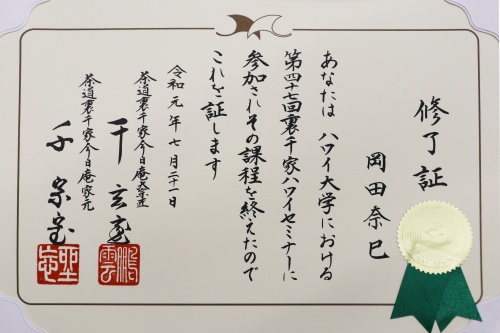 修了証
岡田奈巳
あなたは ハワイ大学における
第四十七回裏千家ハワイセミナーに
参加されその課程を終えたので
これを証します
令和元年七月二十一日
茶道裏千家今日庵大宗匠
千玄室
茶道裏千家今日庵家元
千宗室